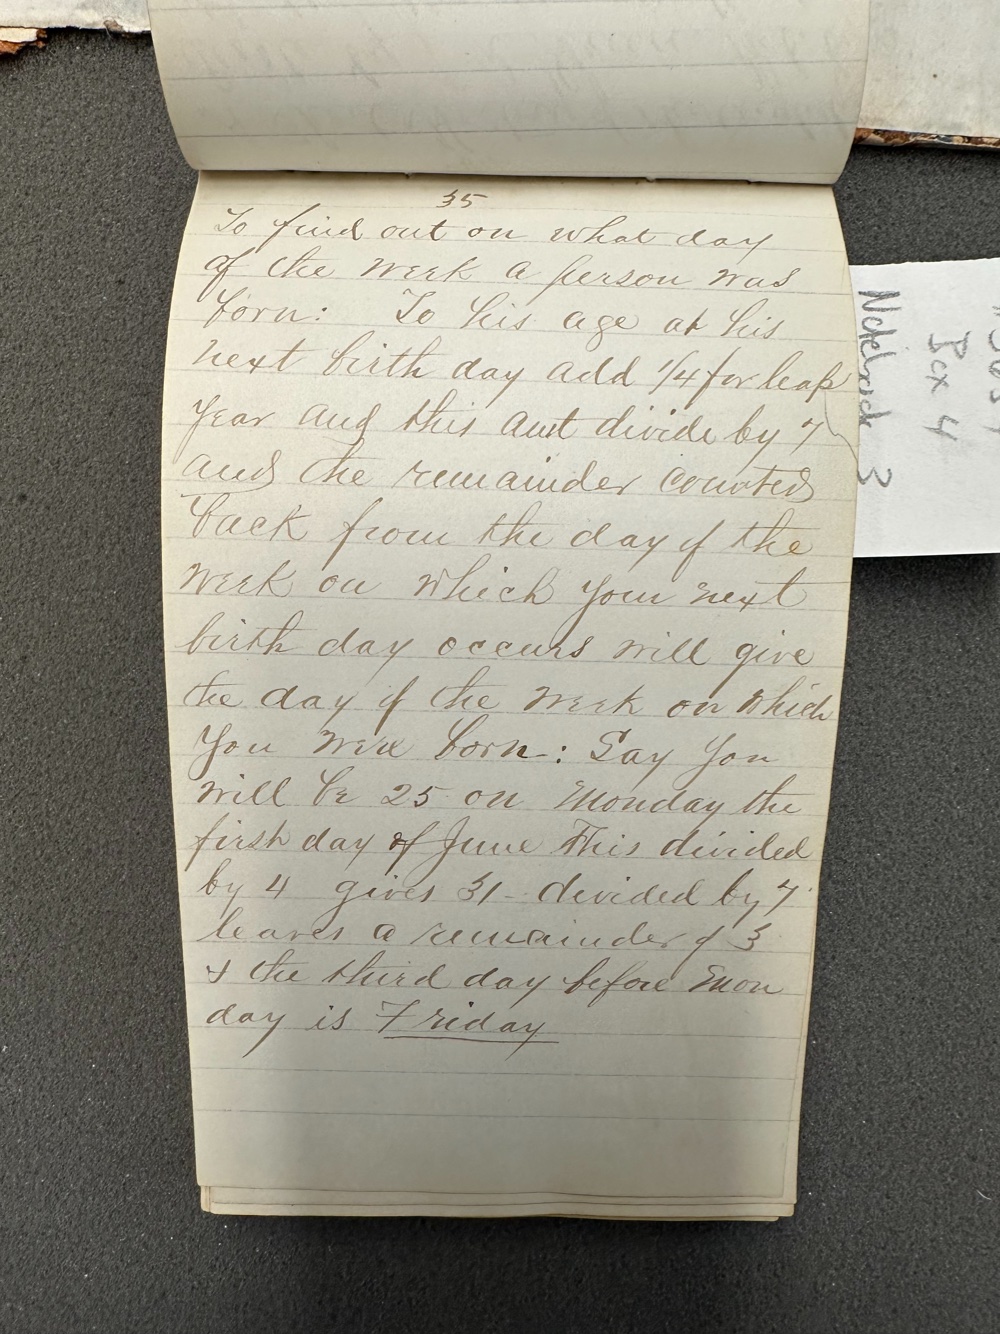 35
To find out on what day
of the week a person was
born: To his age at his
next birth day add 1/4 for leap
year and this amt divide by 7
and the remainder counted
back from the day of the
week on which your next
birth day occurs will give
the day of the week on which
you were born: Say you
will be 25 on Monday the
first day of June This divided
by 4 gives 31 - divided by 7
leaves a remainder of 3
& the third day before Mon
day is Friday
Box 4